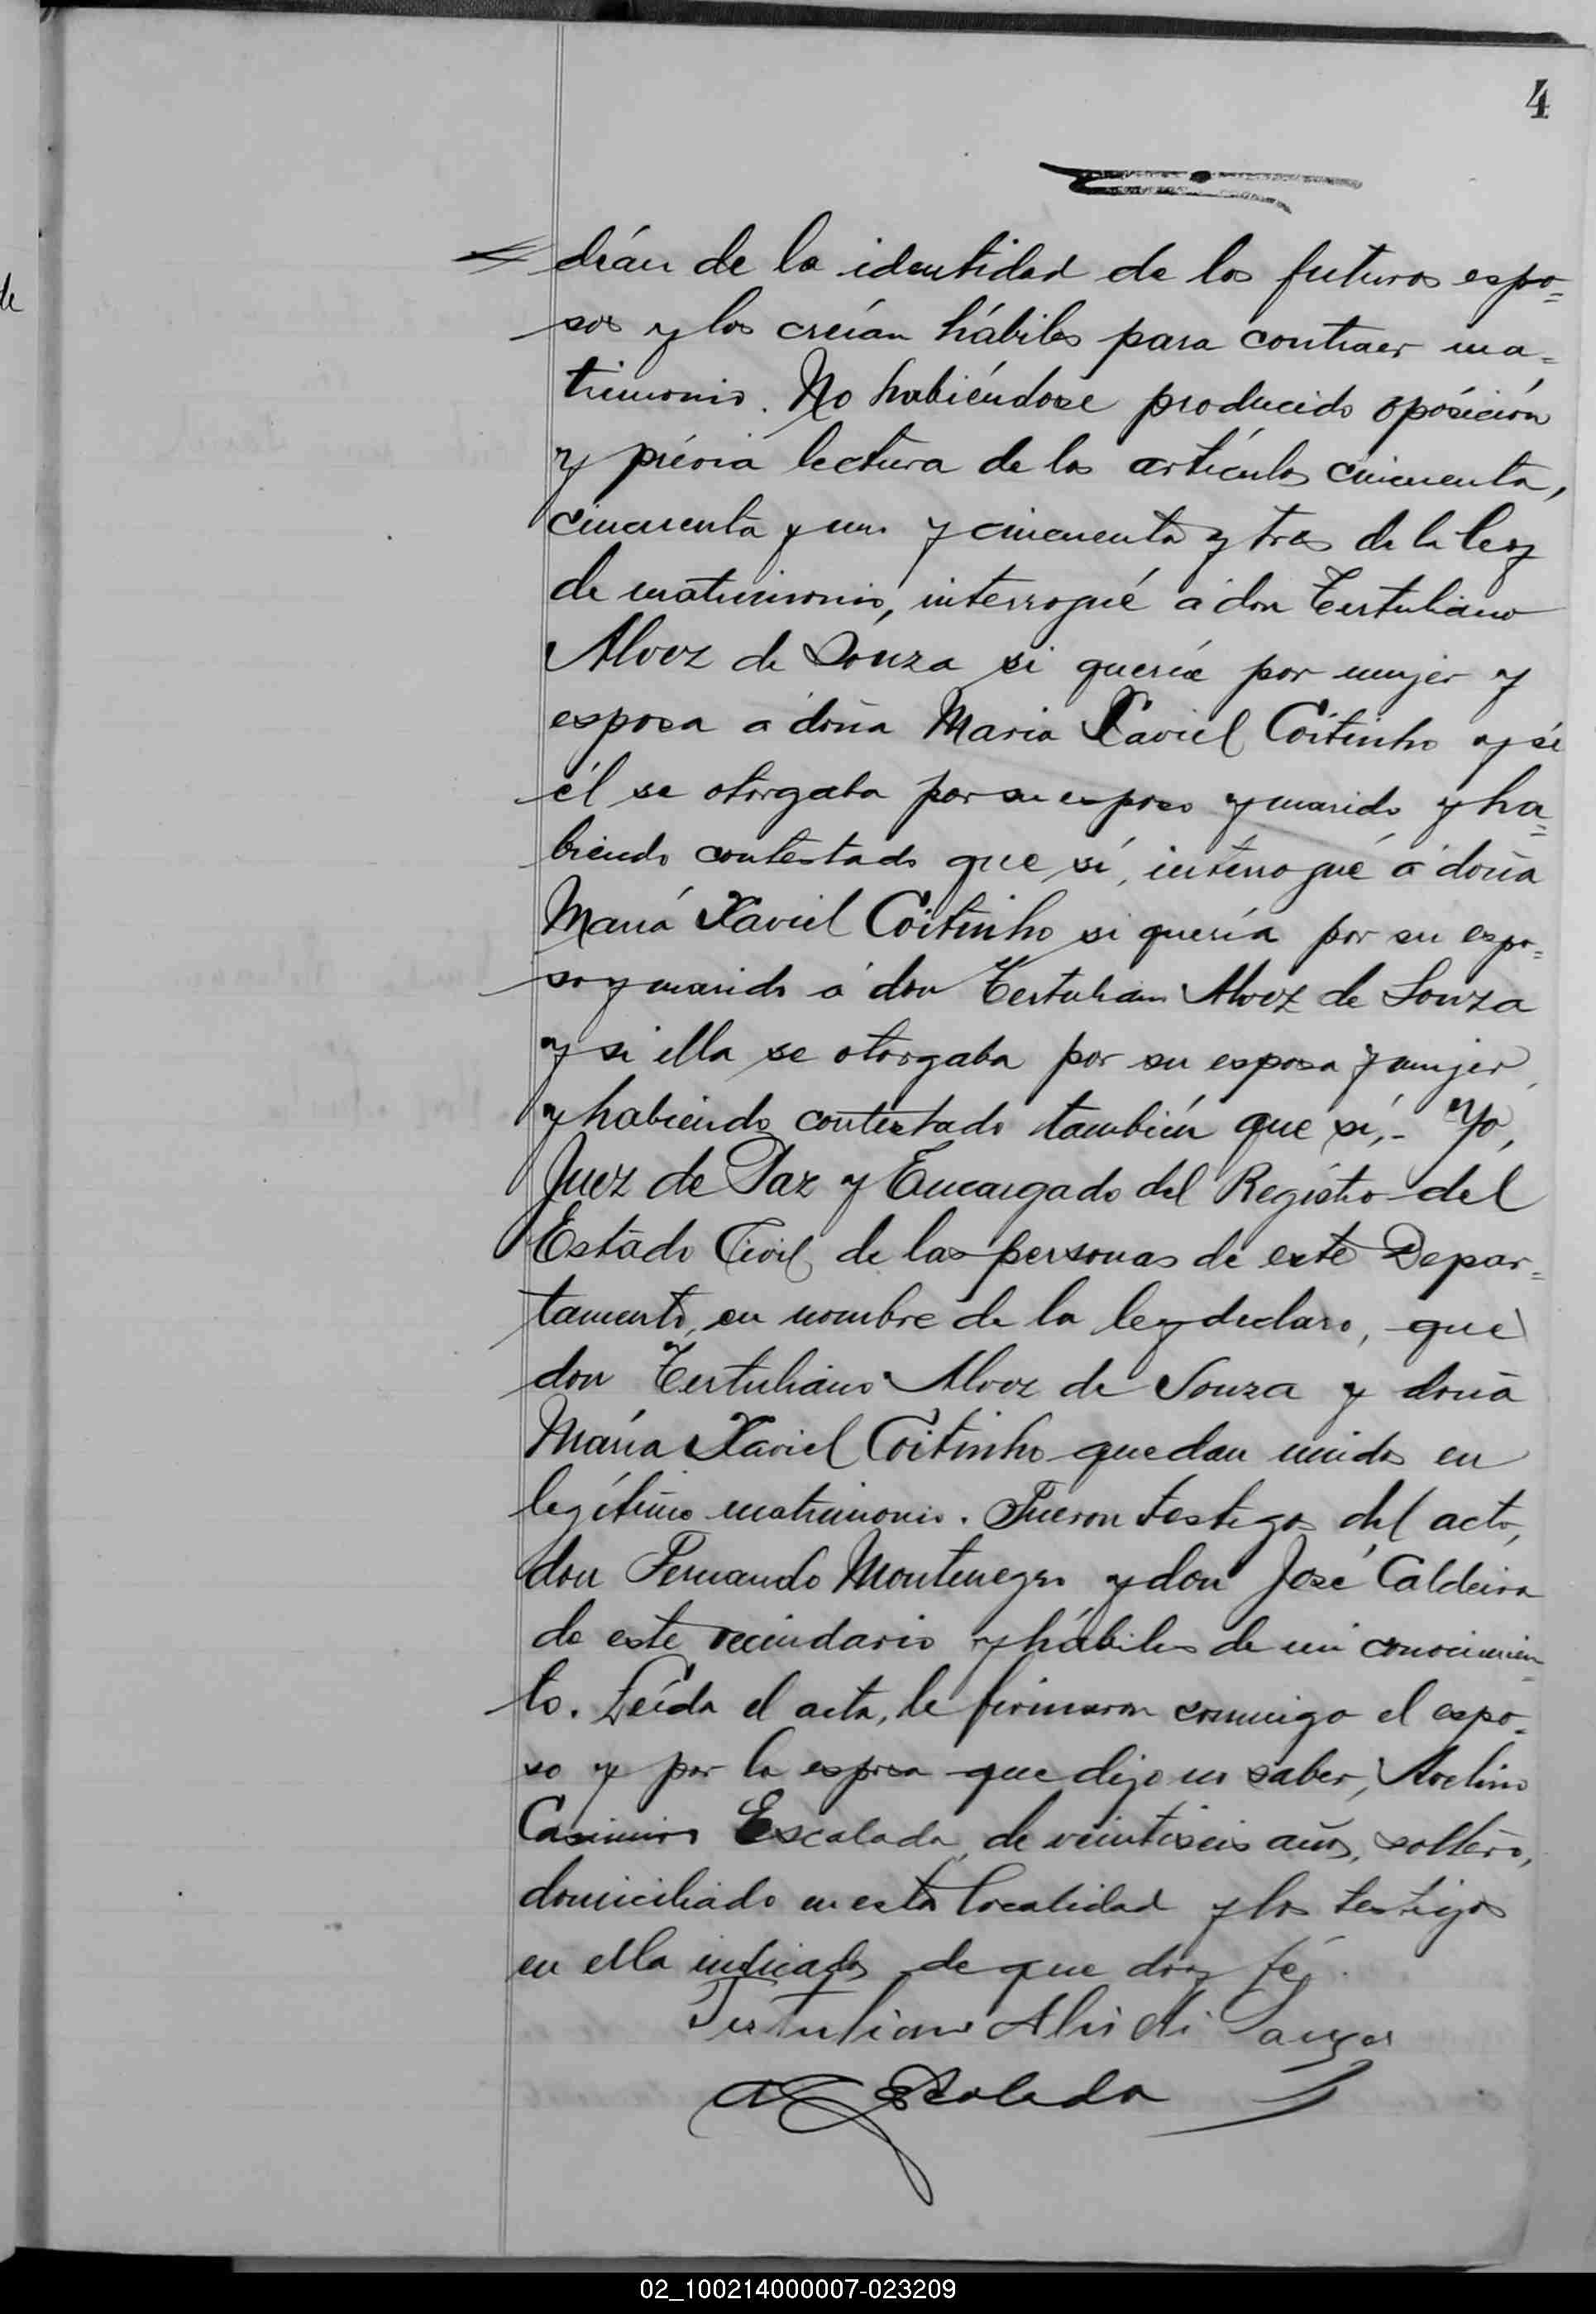 4
de
drán de la identidad de los futuros espo=
sos y los creían hábiles para contraer ma=
trimonio. No habiéndose producido oposición
y prévia lectura de los artículos cincuenta,
cincuenta y uno y cincuenta y tres de la ley
de matrimonio, interrogué á don Tertuliano
Alvez de Souza si quería por mujer y
esposa á doña Maria Xaviel Coitinho y si
él se otorgaba por su esposo y marido y ha=
biendo contestado que sí, interrogué á doña
María Xaviel Coitinho si quería por su espo=
so y marido á don Tertuliano Alvez de Souza
y si ella se otorgaba por su esposa y mujer,
y habiendo contestado también que sí,- Yo,
Juez de Paz y Encargado del Registro del
Estado Civil de las personas de este Depar=
tamento, en nombre de la ley declaro, que
don Tertuliano Alvez de Souza y doña
María Xaviel Coitinho quedan unidos en
legítimo matrimonio. Fueron testigos del acto,
don Fernando Montenegro y don José Caldeira
de este vecindario y hábiles de mi conocimien=
to. Leída el acta, la firmaron conmigo el espo=
so y por la esposa que dijo no saber, Avelino
Casimiro Escalada, de veintiseis años, soltero,
domiciliado en esta localidad y los testigos
en ella indicados de que doy fé.
Tertuliano Alvis di Sauza
A Escalada
02_100214000007-023209